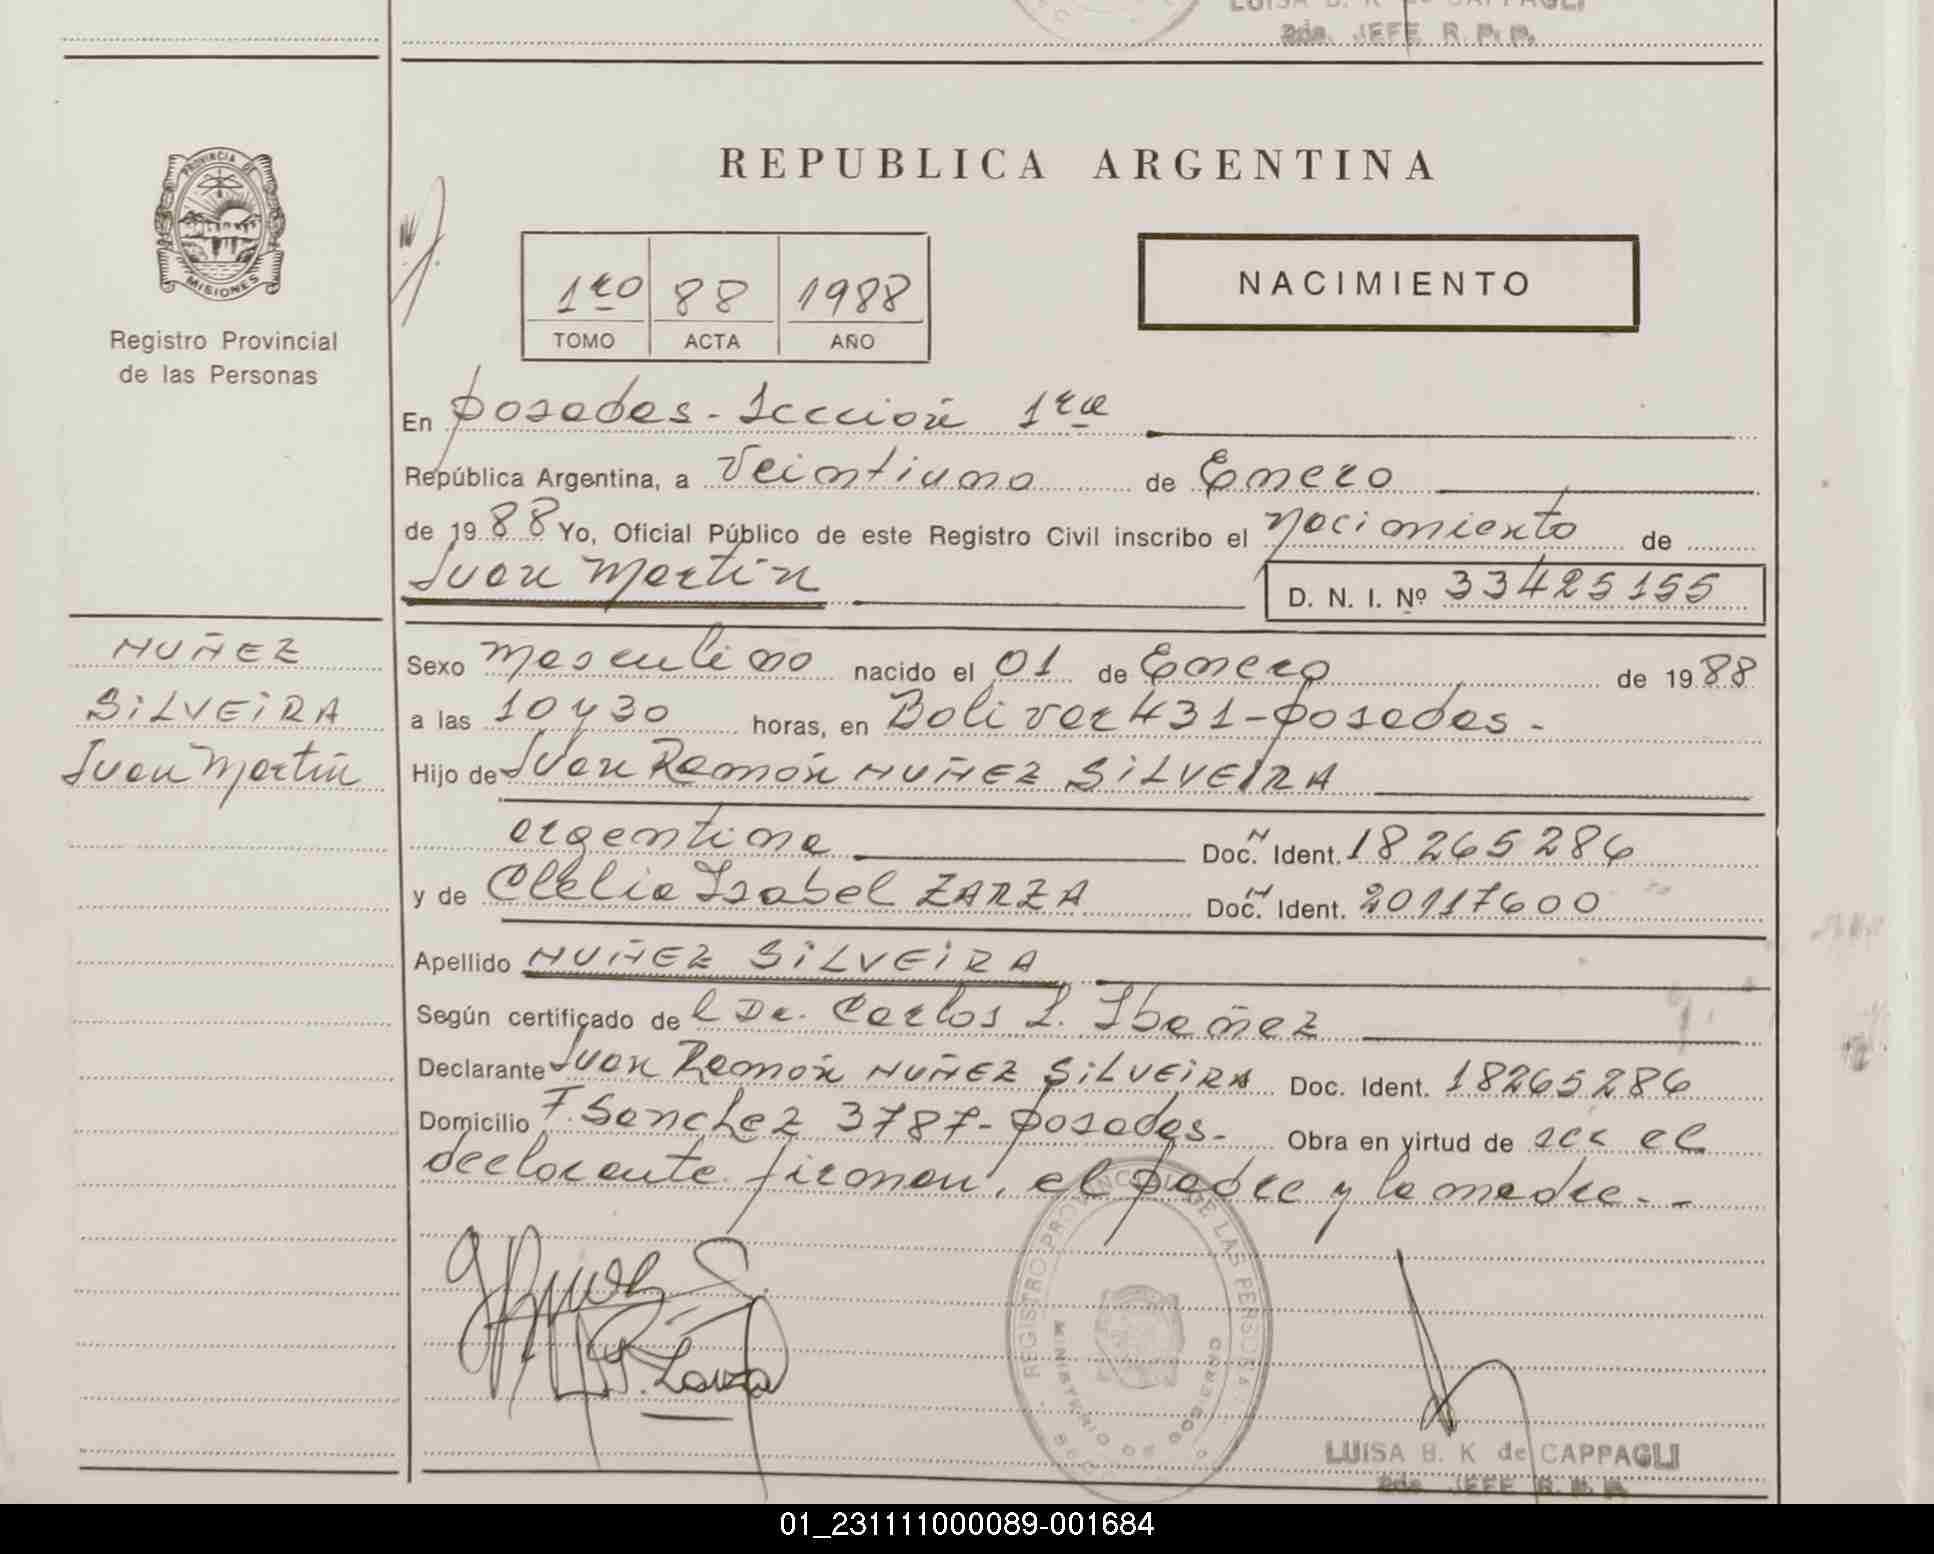 LUISA B. K de CAPPAGLI
2da. JEFE R. P. P.
PROVINCIA DE
MISIONES
Registro Provincial
de las Personas
REPUBLICA ARGENTINA
1ro 88 1988
TOMO ACTA AÑO
NACIMIENTO
En Posadas - Sección 1ra
República Argentina, a Veintiuno de Enero
de 1988 Yo, Oficial Público de este Registro Civil inscribo el Nacimiento de
Juan Martín
D. N. I. Nº 33425155
NUÑEZ
SILVEIRA
Juan Martín
Sexo Masculino nacido el 01 de Enero de 1988
a las 10 y 30 horas, en Bolivar 431 - Posadas -
Hijo de Juan Ramón NUÑEZ SILVEIRA
argentina Doc. Ident. N 18265286
y de Clelia Isabel ZARZA Doc. Ident. N 20117600
Apellido NUÑEZ SILVEIRA
Según certificado del Dr. Carlos L. Ibañez
Declarante Juan Ramón NUÑEZ SILVEIRA Doc. Ident. 18265286
Domicilio F. Sanchez 3787 - Posadas - Obra en virtud de ser el
declarante. firman, el padre y la madre. -
REGISTRO PROVINCIAL DE LAS PERSONAS
MINISTERIO DE GOBIERNO
LUISA B. K de CAPPAGLI
2da. JEFE R. P. P.
01_231111000089-001684